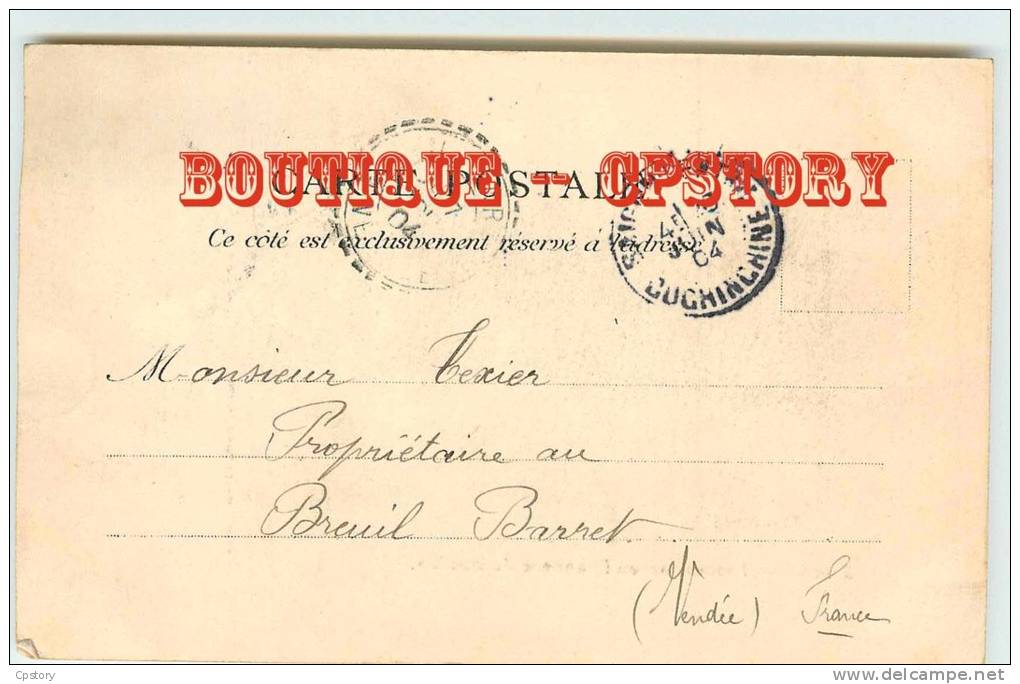 BOUTIQUE - CPSTORY
CARTE POSTALE
Ce côté est exclusivement réservé à l'adresse
04
JUIN
04
COCHINCHINE
Monsieur Texier
Propriétaire au
Breuil Barret
(Vendée) France
Cpstory
delcampe.net